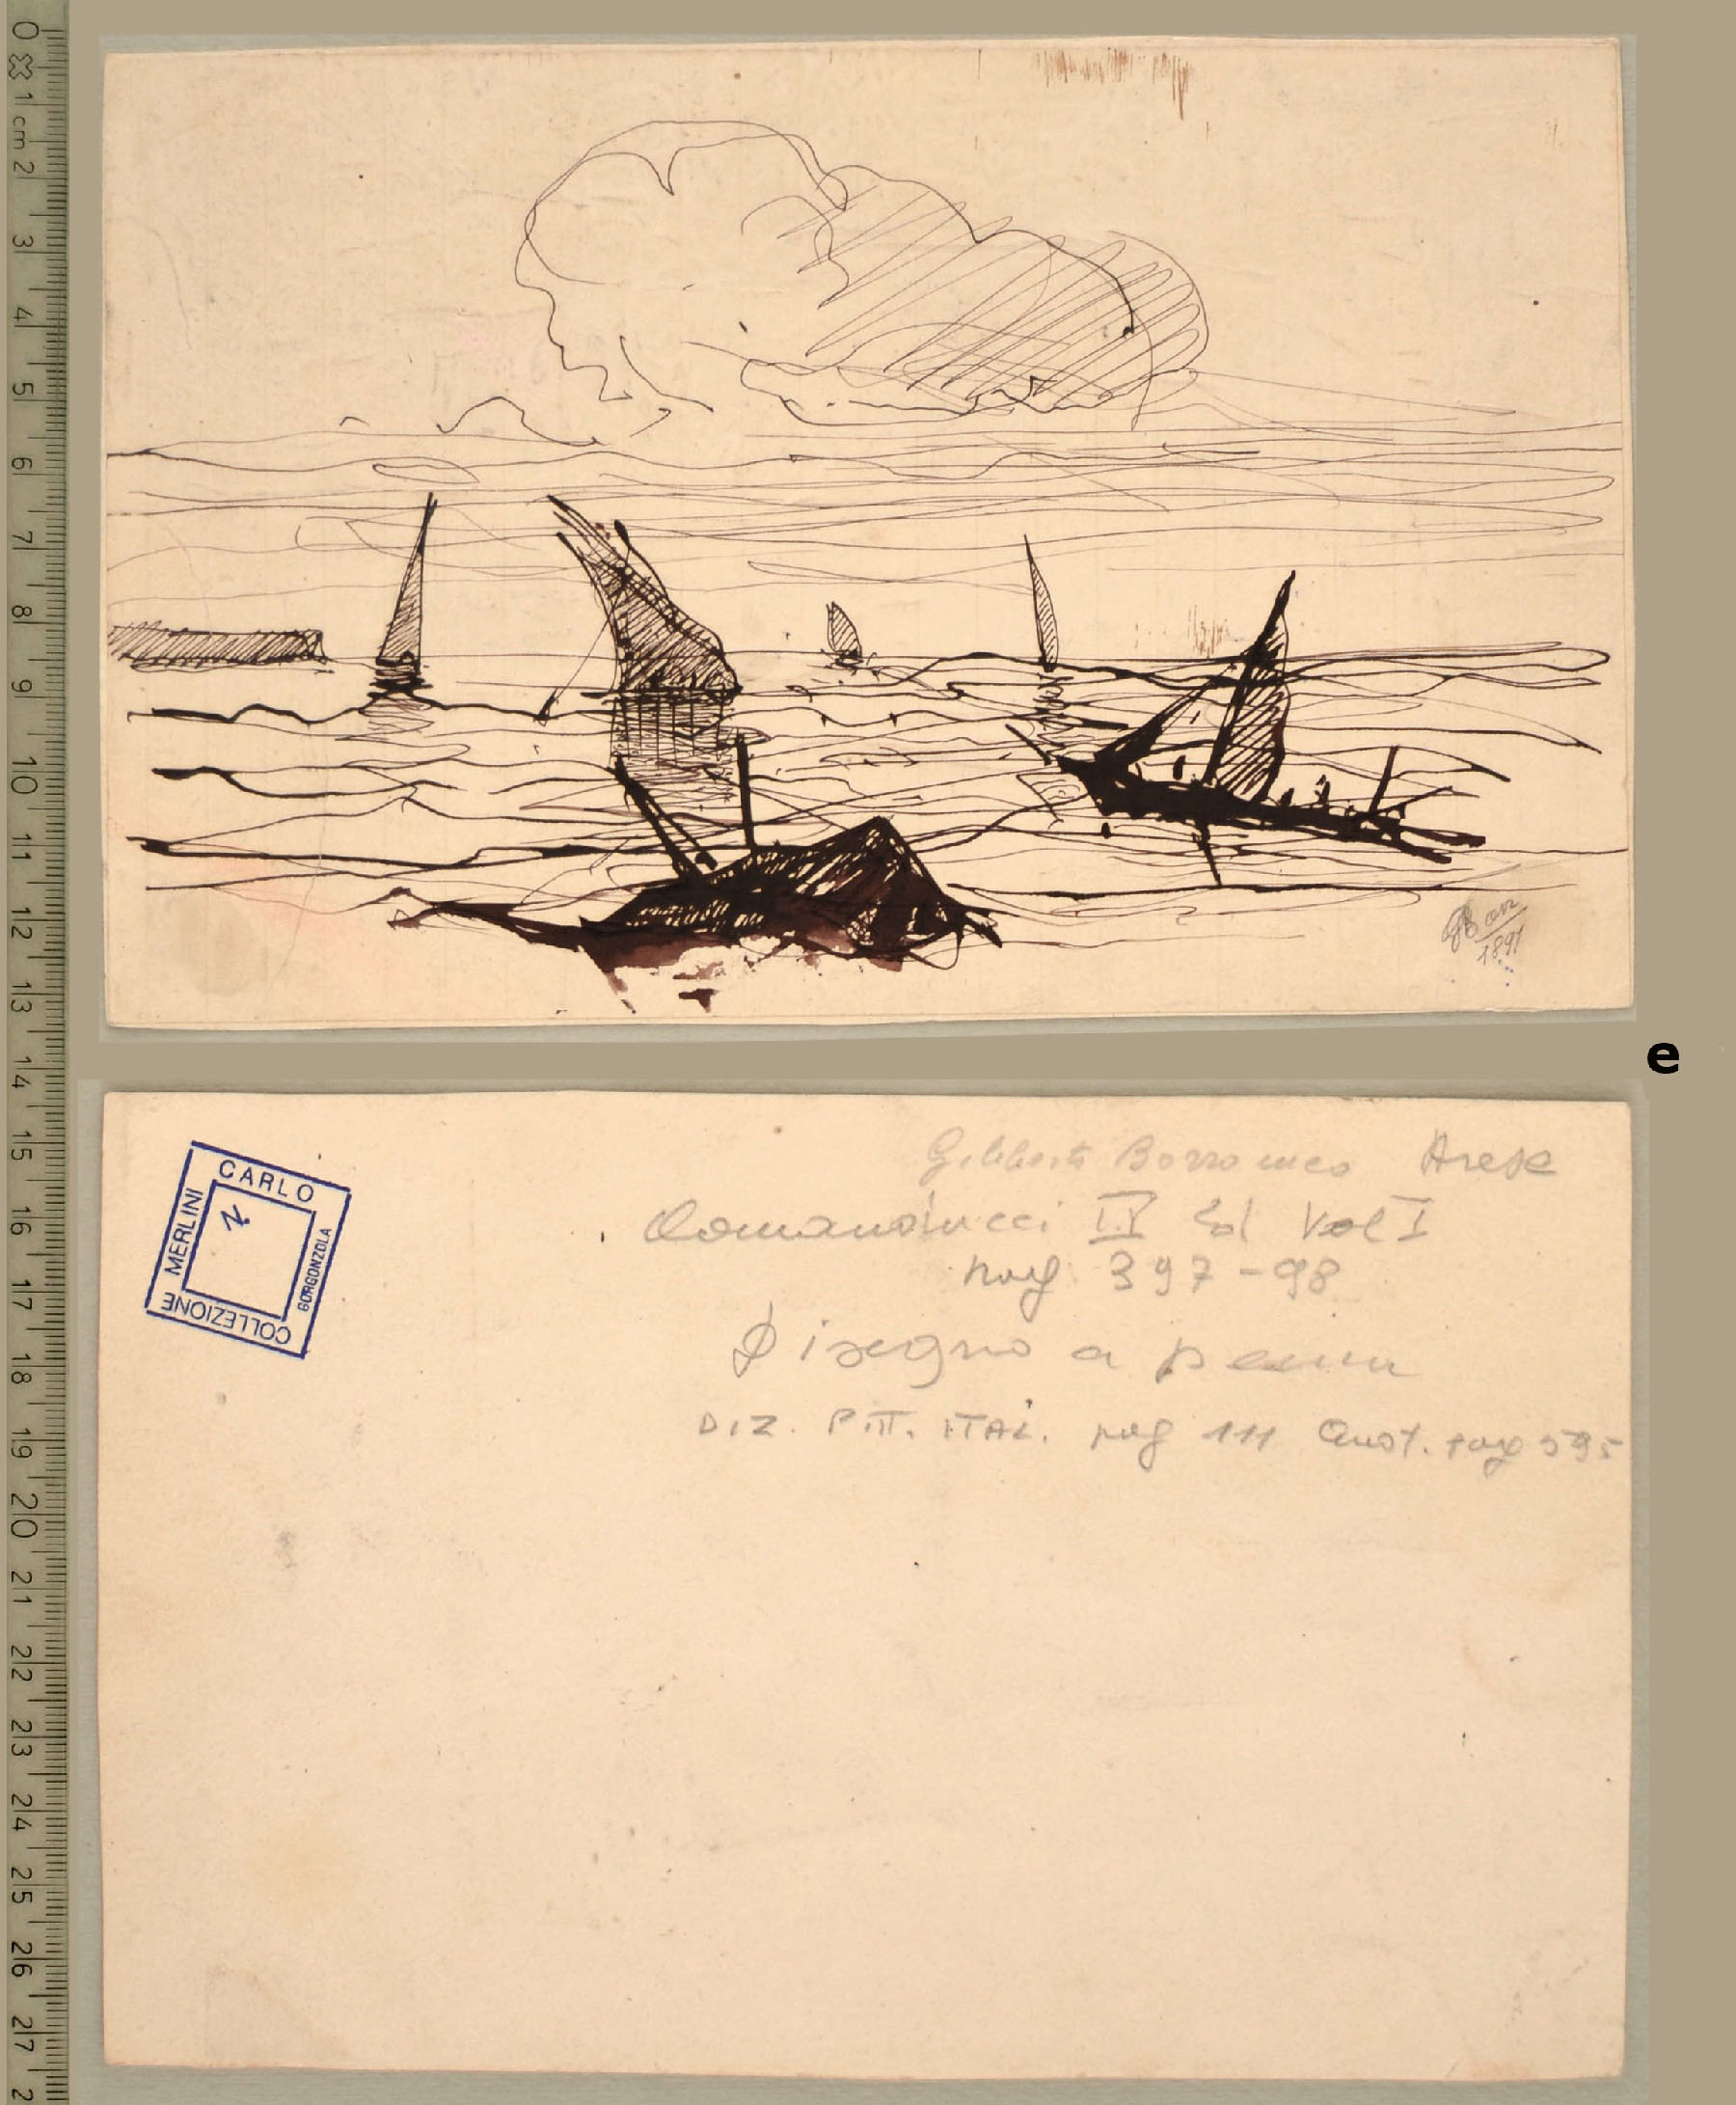 0 1 cm 2 3 4 5 6 7 8 9 10 11 12 13 14 15 16 17 18 19 20 21 22 23 24 25 26 27 2
1891
e
CARLO
MERLINI
COLLEZIONE
GORGONZOLA
N.
Gilberto Borromeo Arese
Comanducci IV Ed Vol I
pag 397-98
Disegno a penna
DIZ. PITT. ITAL. pag 111 Quot. pag 595